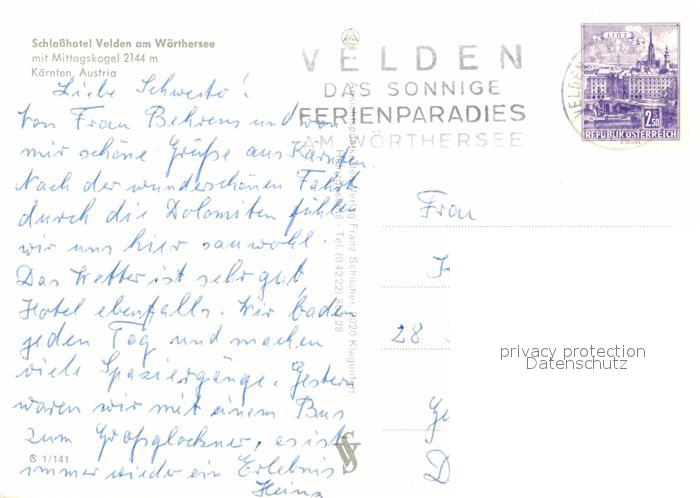 Schloßhotel Velden am Wörthersee
mit Mittagskogel 2144 m
Kärnten, Austria
VELDEN
DAS SONNIGE
FERIENPARADIES
AM WÖRTHERSEE
VELDEN
LINZ
2.50
REPUBLIK ÖSTERREICH
Liebe Schwester!
Von Frau Behrens und von
mir schöne Grüße aus Kärnten.
Nach der wunderschönen Fahrt
durch die Dolomiten fühlen
wir uns hier sauwohl.
Das Wetter ist sehr gut,
Hotel ebenfalls. Wir baden
jeden Tag und machen
viele Spaziergänge. Gestern
waren wir mit einem Bus
zum Großglockner, es ist
immer wieder ein Erlebnis
Heinz
C 1/141
Verlag Franz Schilcher, 9020 Klagenfurt
Tel. (04222)
Frau
28
privacy protection
Datenschutz